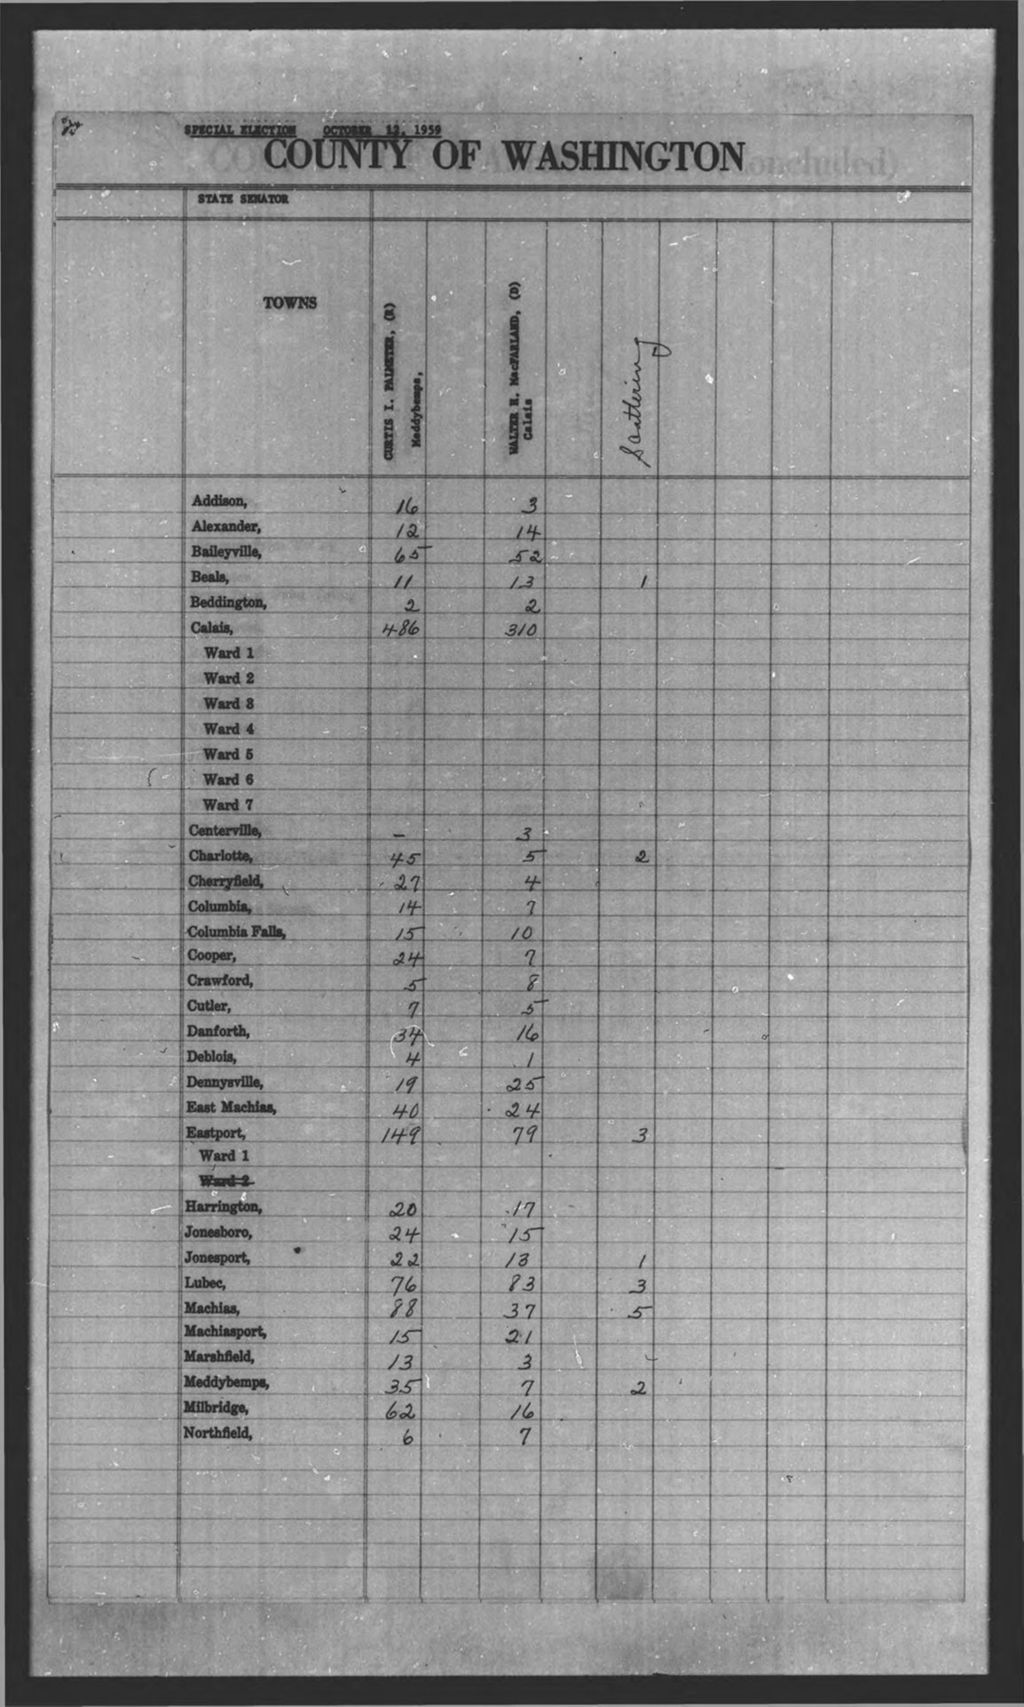 SPECIAL ELECTION OCTOBER 12, 1959
COUNTY OF WASHINGTON
STATE SENATOR
TOWNS
CURTIS I. PALMETER, (R)
Meddybemps,
WALTER H. MacFARLAND, (D)
Calais
Scattering
Addison, 16 3
Alexander, 12 14
Baileyville, 65 52
Beals, 11 13 1
Beddington, 2 2
Calais, 486 310
Ward 1
Ward 2
Ward 3
Ward 4
Ward 5
Ward 6
Ward 7
Centerville, – 3
Charlotte, 45 5 2
Cherryfield, 27 4
Columbia, 14 7
Columbia Falls, 15 10
Cooper, 24 7
Crawford, 5 8
Cutler, 7 5
Danforth, 34 16
Deblois, 4 1
Dennysville, 19 25
East Machias, 40 24
Eastport, 149 79 3
Ward 1
Ward 2
Harrington, 20 17
Jonesboro, 24 15
Jonesport, 22 13 1
Lubec, 76 83 3
Machias, 88 37 5
Machiasport, 15 21
Marshfield, 13 3
Meddybemps, 35 7 2
Milbridge, 62 16
Northfield, 6 7